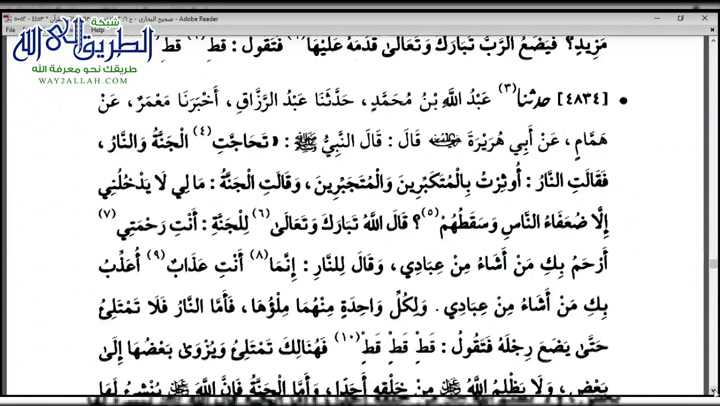 صحيح البخاري - Adobe Reader
File
Help
شبكة
الطريق إلى الله
طريقك نحو معرفة الله
WAY2ALLAH.COM
مَزِيدٍ؟ فَيَضَعُ الرَّبُّ تَبَارَكَ وَتَعَالَى قَدَمَهُ عَلَيْهَا فَتَقُولُ: قَطِ(١) قَطِ
• [٤٨٣٤] حدثنا(٣) عَبْدُ اللَّهِ بْنُ مُحَمَّدٍ، حَدَّثَنَا عَبْدُ الرَّزَّاقِ، أَخْبَرَنَا مَعْمَرٌ، عَنْ
هَمَّامٍ، عَنْ أَبِي هُرَيْرَةَ رضي الله عنه قَالَ: قَالَ النَّبِيُّ ﷺ: «تَحَاجَّتِ(٤) الْجَنَّةُ وَالنَّارُ،
فَقَالَتِ النَّارُ: أُوثِرْتُ بِالْمُتَكَبِّرِينَ وَالْمُتَجَبِّرِينَ، وَقَالَتِ الْجَنَّةُ: مَا لِي لَا يَدْخُلُنِي
إِلَّا ضُعَفَاءُ النَّاسِ وَسَقَطُهُمْ(٥)؟ قَالَ اللَّهُ تَبَارَكَ وَتَعَالَى(٦) لِلْجَنَّةِ: أَنْتِ رَحْمَتِي(٧)
أَرْحَمُ بِكِ مَنْ أَشَاءُ مِنْ عِبَادِي، وَقَالَ لِلنَّارِ: إِنَّمَا(٨) أَنْتِ عَذَابٌ(٩) أُعَذِّبُ
بِكِ مَنْ أَشَاءُ مِنْ عِبَادِي. وَلِكُلِّ وَاحِدَةٍ مِنْهُمَا مِلْؤُهَا، فَأَمَّا النَّارُ فَلَا تَمْتَلِئُ
حَتَّى يَضَعَ رِجْلَهُ فَتَقُولُ: قَطْ قَطْ قَطْ(١٠) فَهُنَالِكَ تَمْتَلِئُ وَيُزْوَى بَعْضُهَا إِلَى
بَعْضٍ، وَلَا يَظْلِمُ اللَّهُ ﷻ مِنْ خَلْقِهِ أَحَدًا، وَأَمَّا الْجَنَّةُ فَإِنَّ اللَّهَ ﷻ يُنْشِئُ لَهَا